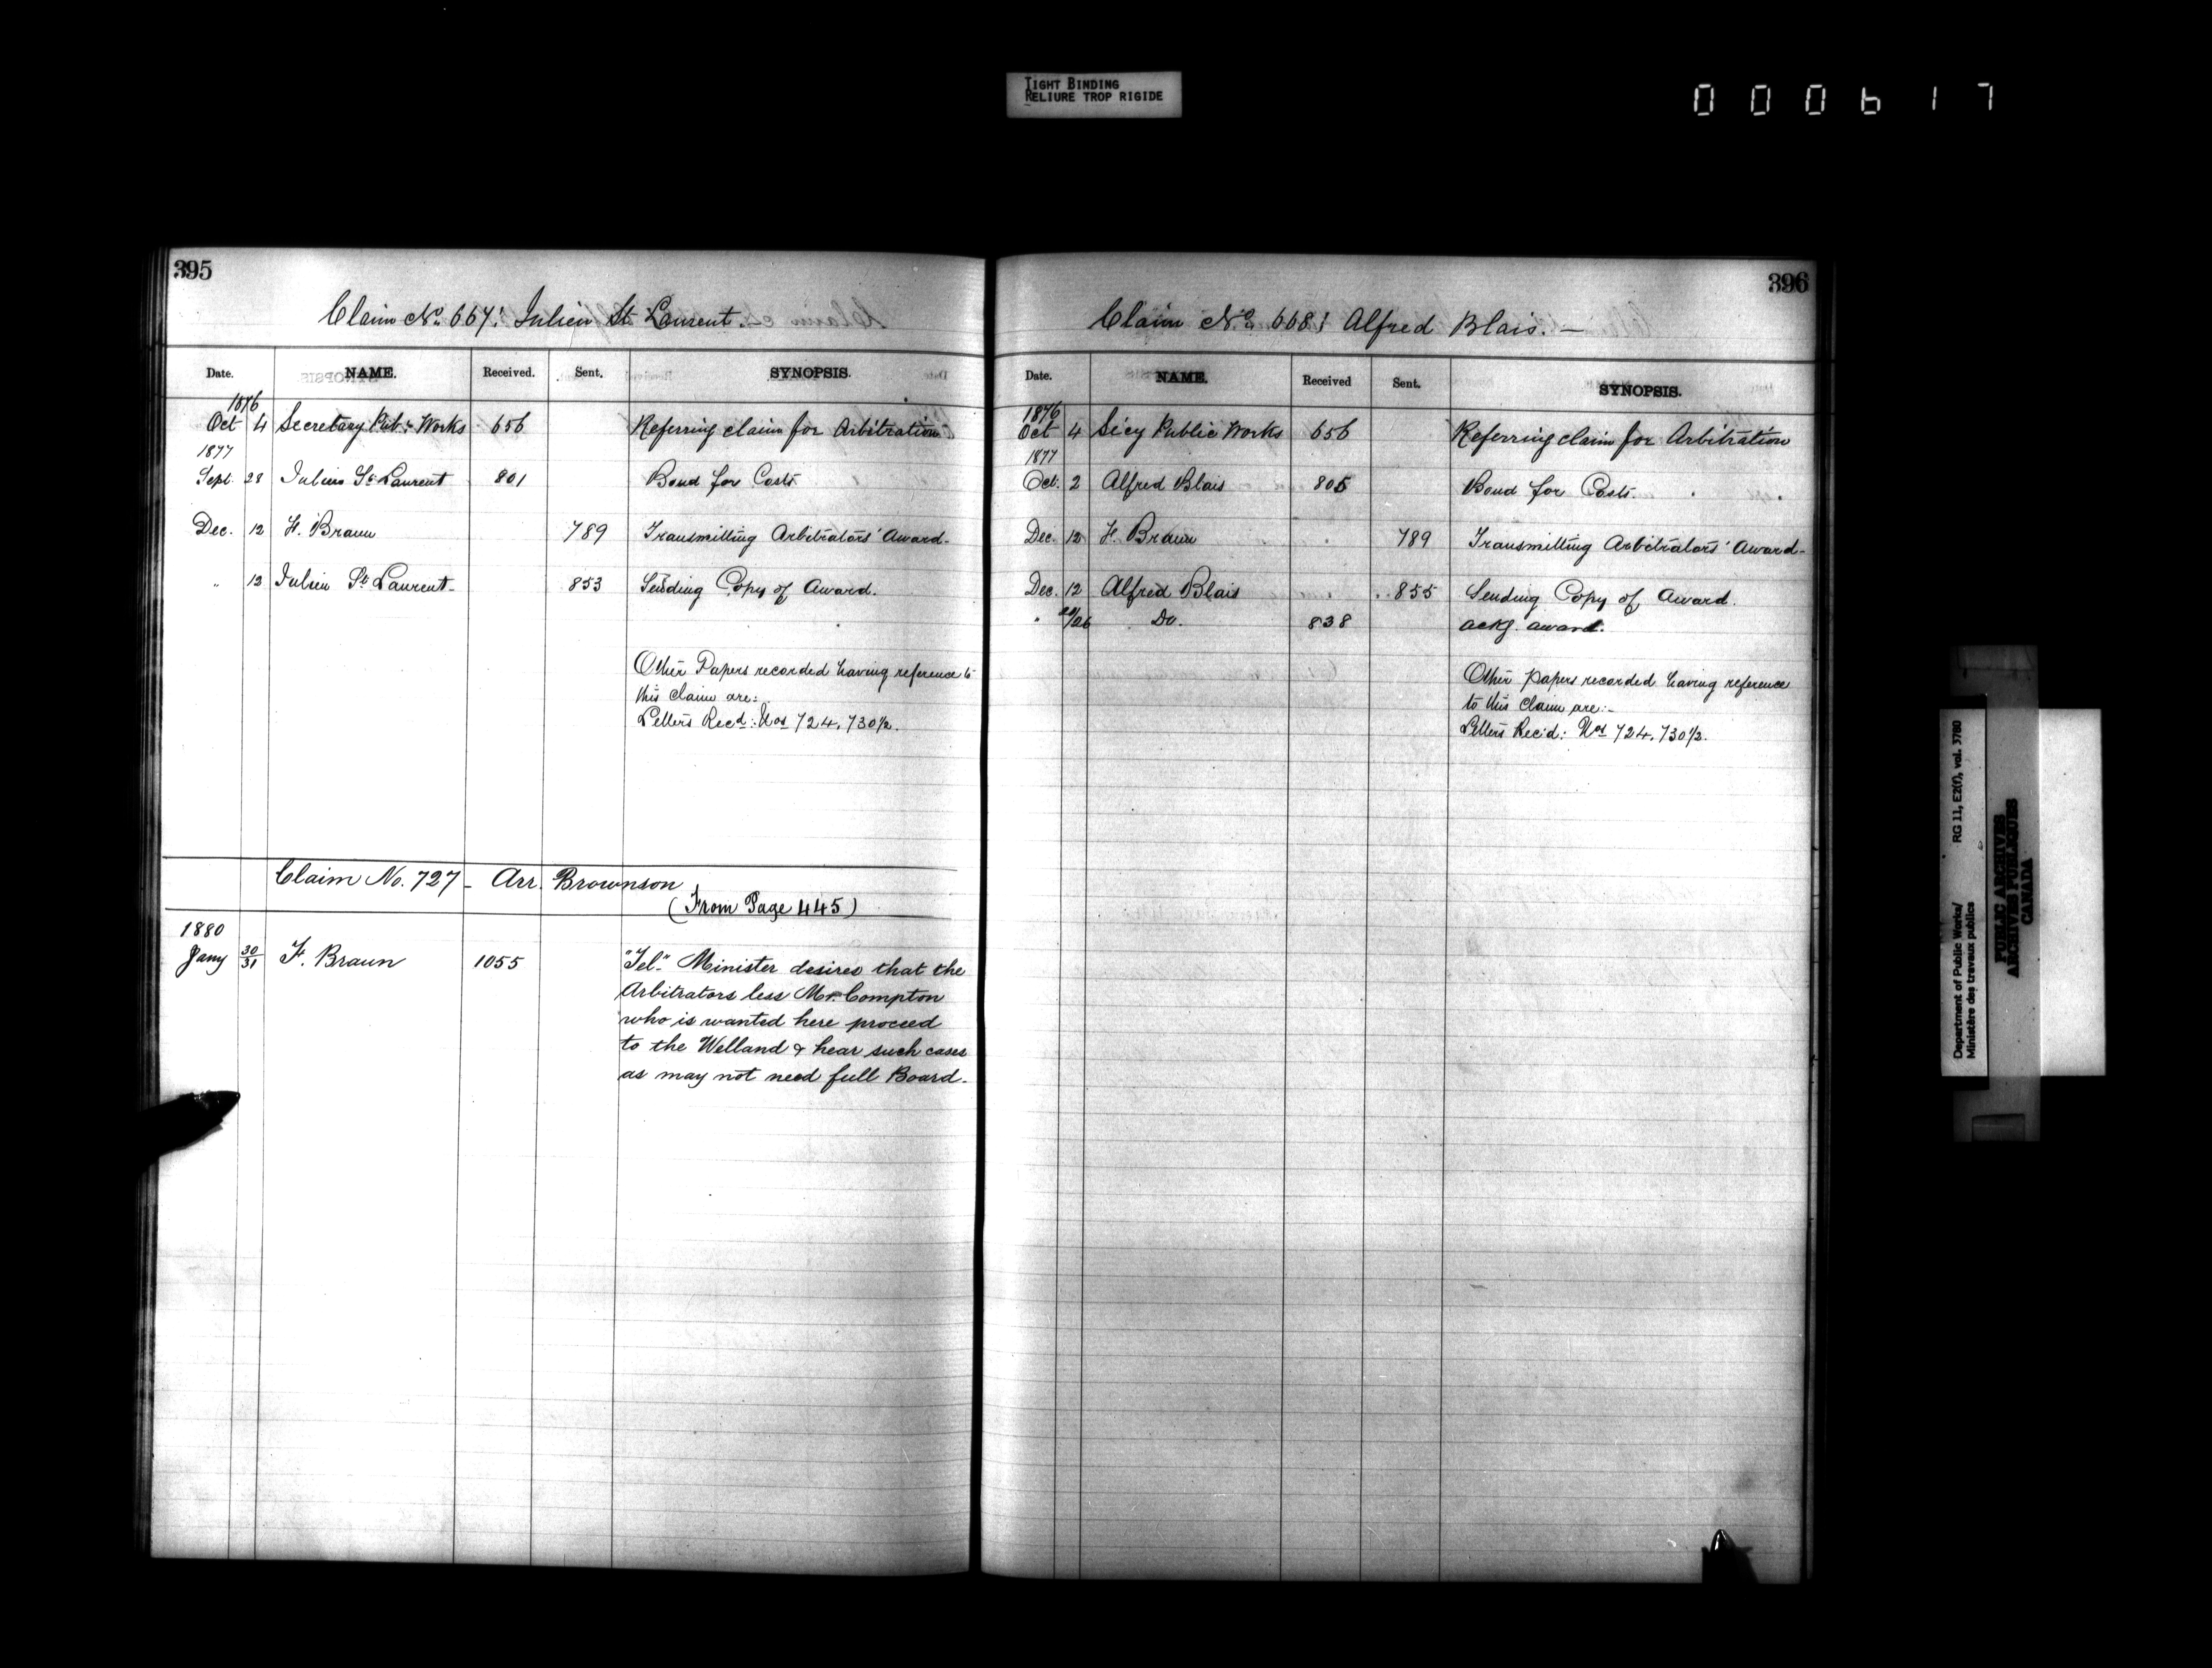 TIGHT BINDING
RELIURE TROP RIGIDE
000617
395
Claim No. 667: Julien St. Laurent.
Date. NAME. Received. Sent. SYNOPSIS.
1876
Oct 4 Secretary Pub: Works 656 Referring claim for Arbitration
1877
Sept. 28 Julien St. Laurent 801 Bond for Costs
Dec. 12 F. Braun 789 Transmitting Arbitrators' Award.
" 12 Julien St. Laurent 853 Sending Copy of Award.
Other Papers recorded having reference to
this claim are:
Letters Recd: Nos 724, 730½.
Claim No. 727 - Arr. Brownson
(From Page 445)
1880
Jany 30/31 F. Braun 1055 "Tel." Minister desires that the
Arbitrators less Mr. Compton
who is wanted here proceed
to the Welland & hear such cases
as may not need full Board.
396
Claim No. 668: Alfred Blais. —
Date. NAME. Received Sent. SYNOPSIS.
1876
Oct 4 Secy Public Works 656 Referring claim for Arbitration
1877
Oct. 2 Alfred Blais 805 Bond for Costs.
Dec. 12 F. Braun 789 Transmitting Arbitrators' Award-
Dec. 12 Alfred Blais 855 Sending Copy of Award.
" /26 Do. 838 ackg. award.
Other papers recorded having reference
to this claim are:-
Letters Rec'd: Nos 724, 730½.
Department of Public Works/ RG 11, E2(f), vol. 3780
Ministère des travaux publics
PUBLIC ARCHIVES
ARCHIVES PUBLIQUES
CANADA